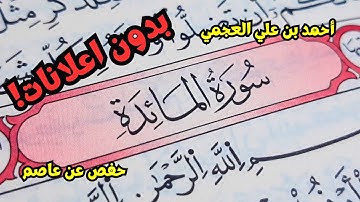 أحمد بن علي العجمي
بدون إعلانات!
سُورَةُ المَائِدَةِ
حفص عن عاصم
اللَّهِ الرَّحْمَٰنِ